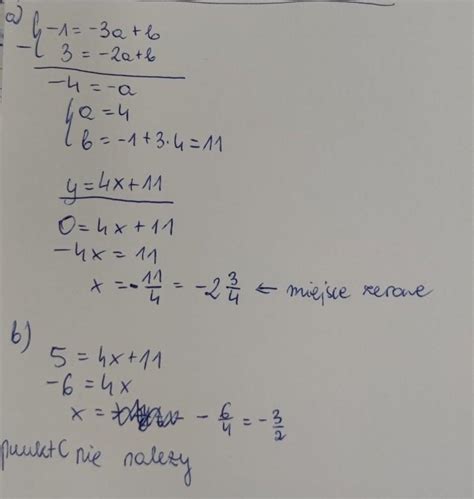 a) { -1 = -3a + b
- { 3 = -2a + b
-4 = -a
{ a = 4
{ b = -1 + 3·4 = 11
y = 4x + 11
0 = 4x + 11
-4x = 11
x = -11/4 = -2 3/4 ← miejsce zerowe
b)
5 = 4x + 11
-6 = 4x
x = - 6/4 = - 3/2
punkt C nie należy